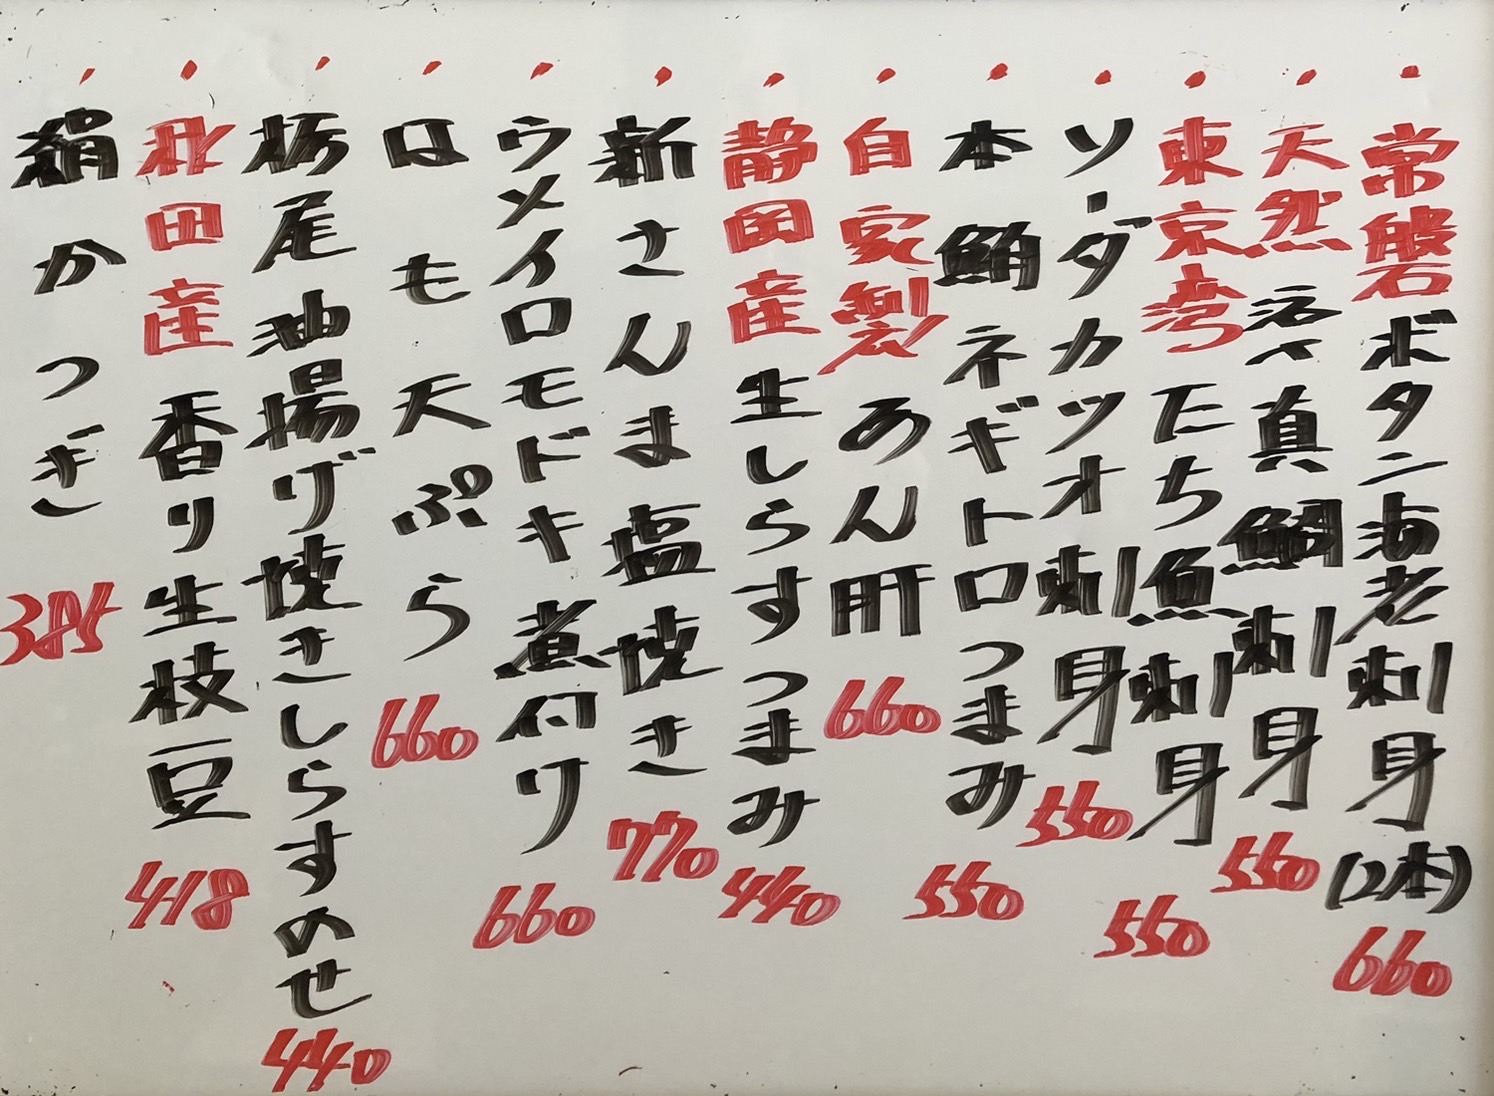 ・常磐ボタン海老刺身(2本) 660
・天然活〆真鯛刺身 550
・東京湾たち魚刺身 550
・ソーダカツオ刺身 550
・本鮪ネギトロつまみ 550
・自家製あん肝 660
・静岡産生しらすつまみ 440
・新さんま塩焼き 770
・ウメイロモドキ煮付け 660
・はも天ぷら 660
・栃尾油揚げ焼きしらすのせ 440
・秋田産香り生枝豆 418
・絹かつぎ 385